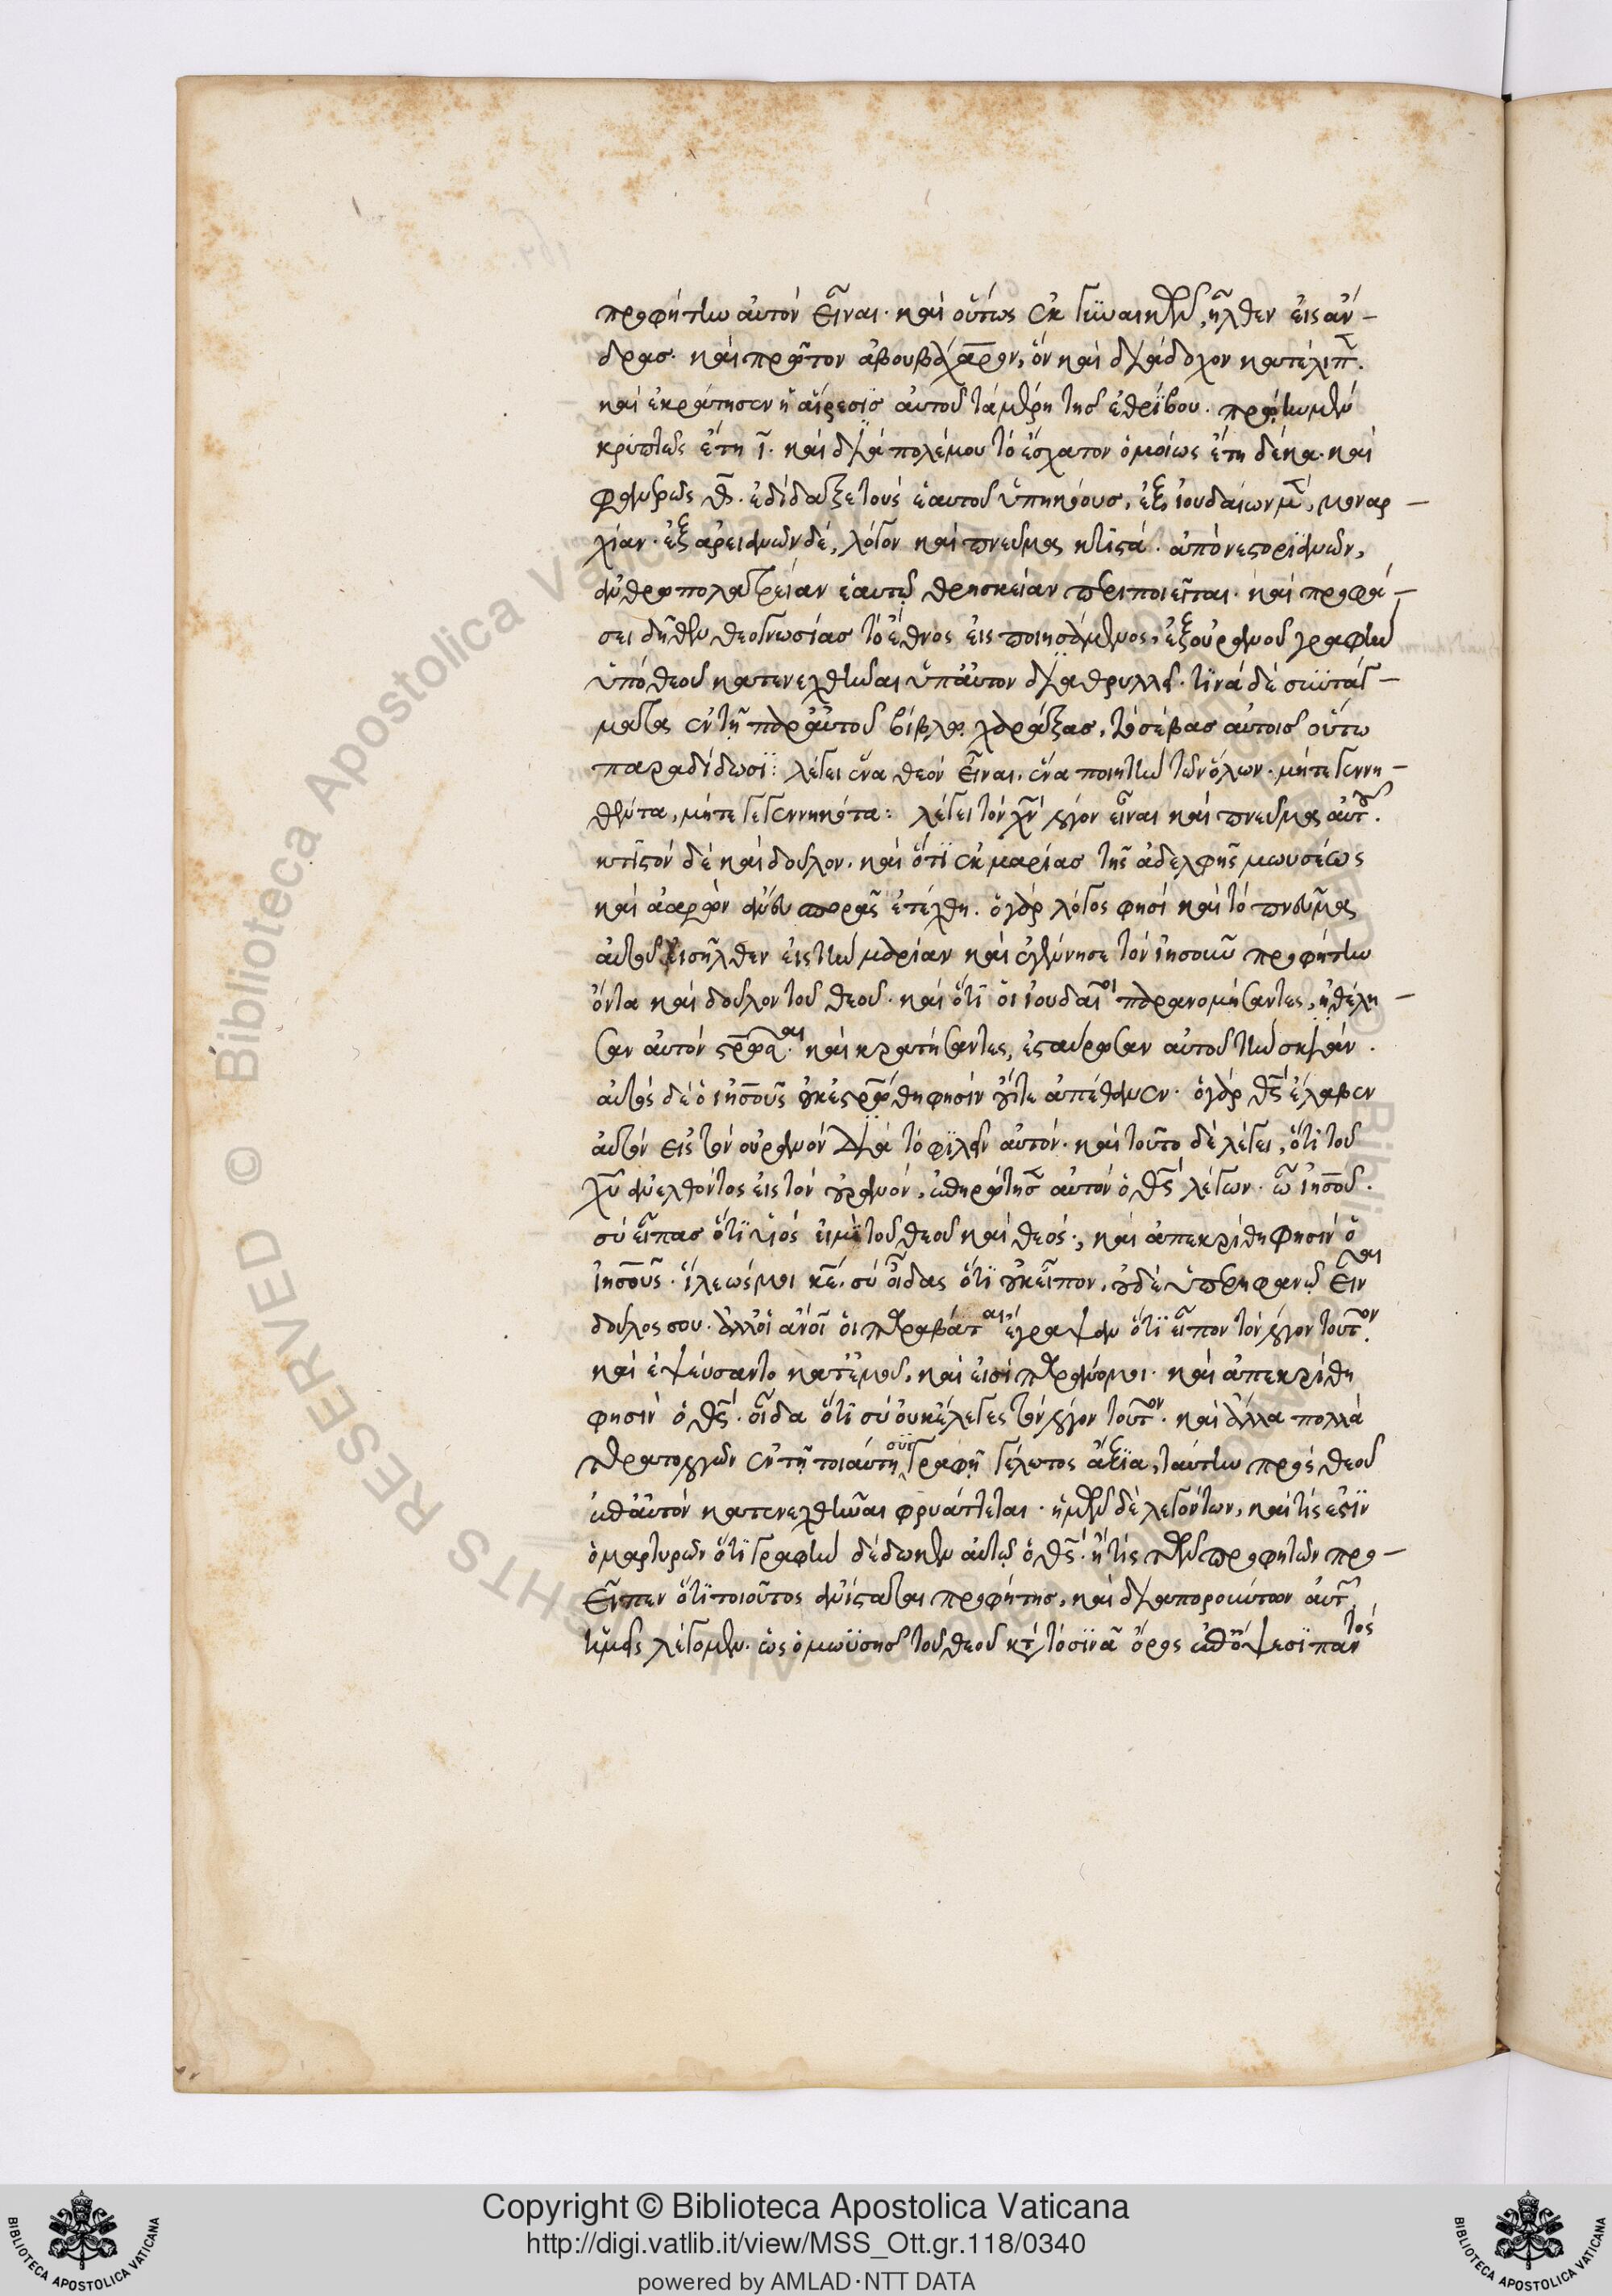 προφήτην αὐτὸν εἶναι· καὶ οὕτως ἐκ γυναικῶν, ἦλθεν εἰς ἄν-
δρας· καὶ πρῶτον ἀβουβάχαρον, ὃν καὶ διάδοχον κατέλιπ.
καὶ ἐκράτησεν ἡ αἵρεσις αὐτοῦ τὰ μέρη τῆς ἐθρίβου· πρώην μὲν
κρυπτῶς ἔτη ι· καὶ διὰ πολέμου τὸ ἔσχατον ὁμοίως ἔτη δέκα· καὶ
φανερῶς θ· ἐδίδαξε τοὺς ἑαυτοῦ ὑπηκόους, ἐξ ἰουδαίων μ, μοναρ-
χίαν· ἐξ ἀρειανῶν δὲ, λόγον καὶ πνεῦμα κτιστά· ἀπὸ νεστοριανῶν,
ἀνθρωπολατρείαν ἑαυτῷ θρησκείαν περιποιεῖται· καὶ προφά-
σει δῆθεν θεογνωσίας τὸ ἔθνος εἰς ποιησάμενος, ἐξ οὐρανοῦ γραφὴν
ὑπὸ θεοῦ κατενεχθῆναι ὑπ' αὐτὸν διαθρυλλ· τινὰ δὲ συντάγ-
ματα ἐν τῇ παρ' αὐτοῦ βίβλῳ χαράξας, τὸ σέβας αὐτοῖς οὕτω
παραδίδωσι: λέγει ἕνα θεὸν εἶναι, ἕνα ποιητὴν τῶν ὅλων· μήτε γεννη-
θέντα, μήτε γεγεννηκότα: λέγει τὸν χν λόγον εἶναι καὶ πνεῦμα αὐτοῦ.
κτιστὸν δὲ καὶ δοῦλον, καὶ ὅτι ἐκ μαρίας τῆς ἀδελφῆς μωυσέως
καὶ ἀαρὼν ἄνευ σπορᾶς ἐτέχθη· ὁ γὰρ λόγος φησὶ καὶ τὸ πνεῦμα
αὐτοῦ εἰσῆλθεν εἰς τὴν μαρίαν καὶ ἐγέννησε τὸν ἰησοῦν προφήτην
ὄντα καὶ δοῦλον τοῦ θεοῦ· καὶ ὅτι οἱ ἰουδαῖοι παρανομήσαντες, ἠθέλη-
σαν αὐτὸν στρῶσαι· καὶ κρατήσαντες, ἐσταύρωσαν αὐτοῦ τὴν σκιάν.
αὐτὸς δὲ ὁ ἰησοῦς οὐκ ἐστρώθη φησὶν οὔτε ἀπέθανεν· ὁ γὰρ θς ἔλαβεν
αὐτὸν εἰς τὸν οὐρανὸν διὰ τὸ φιλεῖν αὐτόν· καὶ τοῦτο δὲ λέγει, ὅτι τοῦ
χυ ἀνελθόντος εἰς τὸν οὐρανόν, ἐπηρώτησ αὐτὸν ὁ θς λέγων· ὦ ἰησοῦ.
σὺ εἶπας ὅτι υἱός εἰμι τοῦ θεοῦ καὶ θεός·, καὶ ἀπεκρίθη φησὶν ὁ
ἰησοῦς· ἵλεώς μοι κε, σὺ οἶδας ὅτι οὐκ εἶπον, οὐδὲ ὑπερηφανῶ εἶναι
δοῦλος σου· ἀλλ' οἱ ἀνοι οἱ παραβάται ἔγραψαν ὅτι εἶπον τὸν λόγον τοῦτον.
καὶ ἐψεύσαντο κατ' ἐμοῦ, καὶ εἰσὶ πλανώμενοι· καὶ ἀπεκρίθη
φησὶν ὁ θς· οἶδα ὅτι σὺ οὐκ ἔλεγες τὸν λόγον τοῦτον· καὶ ἄλλα πολλὰ
τερατολογῶν ἐν τῇ τοιαύτῃ συγγραφῇ γέλωτος ἄξια, ταύτην πρὸς θεοῦ
ἐπ' αὐτὸν κατενεχθῆναι φρυάττεται· ἡμῶν δὲ λεγόντων, καὶ τίς ἐστὶν
ὁ μαρτυρῶν ὅτι γραφὴν δέδωκεν αὐτῷ ὁ θς· ἢ τίς τῶν προφητῶν προ-
εῖπεν ὅτι τοιοῦτος ἀνίσταται προφήτης, καὶ διαπορούντων αὐτ
ἡμεῖς λέγομεν· ὡς ὁ μωϋσῆς τοῦ θεοῦ κτ τὸ σινᾶ ὄρος ἐπ' ὄψεσι παντὸς